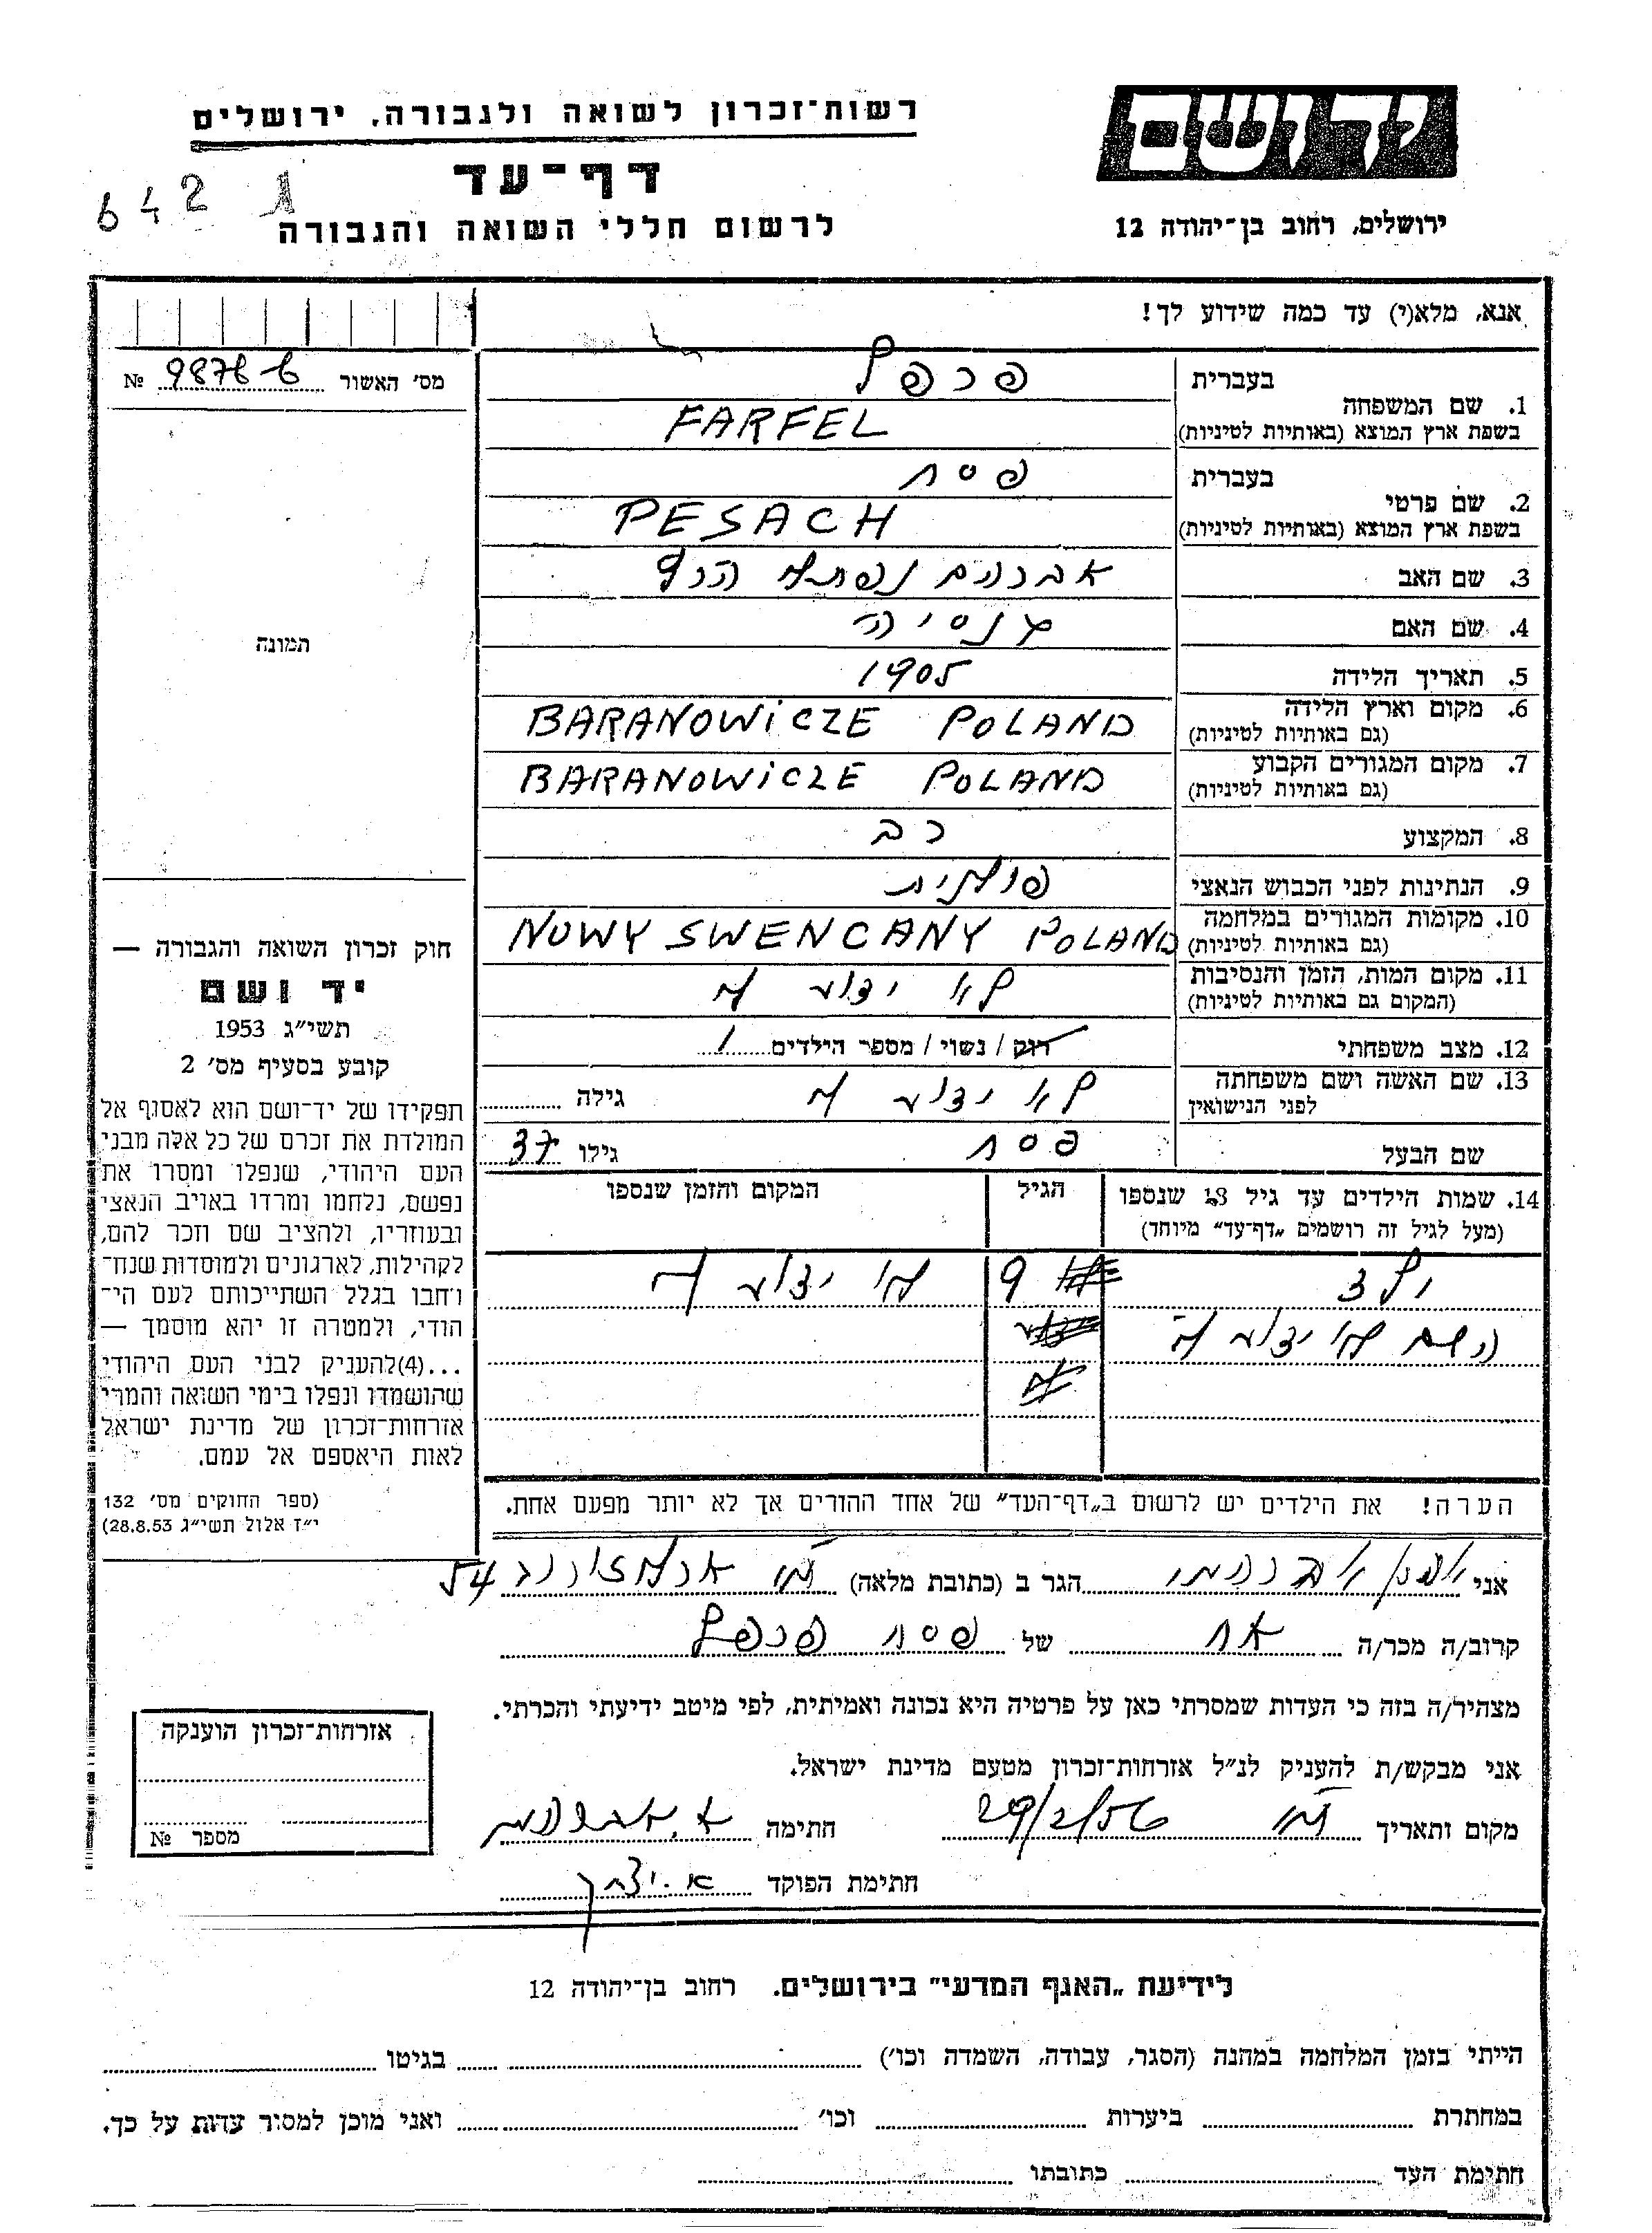 רשות־זכרון לשואה ולגבורה, ירושלים
יד ושם
דף־עד
642
לרשום חללי השואה והגבורה
ירושלים, רחוב בן־יהודה 12
אנא, מלא(י) עד כמה שידוע לך!
מס׳ האשור № 9876-ב
תמונה
בעברית פרפל
1. שם המשפחה
בשפת ארץ המוצא (באותיות לטיניות) FARFEL
בעברית פסח
2. שם פרטי
בשפת ארץ המוצא (באותיות לטיניות) PESACH
3. שם האב אברהם נפתלי הרץ
4. שם האם
5. תאריך הלידה 1905
6. מקום וארץ הלידה BARANOWICZE POLAND
(גם באותיות לטיניות)
7. מקום המגורים הקבוע BARANOWICZE POLAND
(גם באותיות לטיניות)
8. המקצוע רב
9. הנתינות לפני הכבוש הנאצי פולנית
10. מקומות המגורים במלחמה NOWY SWENCANY POLAND
(גם באותיות לטיניות)
11. מקום המות, הזמן והנסיבות לא ידוע לי
(המקום גם באותיות לטיניות)
12. מצב משפחתי רווק / נשוי / מספר הילדים 1
13. שם האשה ושם משפחתה לא ידוע לי גילה
לפני הנישואין
שם הבעל פסח גילו 37
14. שמות הילדים עד גיל 18 שנספו הגיל המקום והזמן שנספו
(מעל לגיל זה רושמים „דף־עד" מיוחד)
ילד 9 לא ידוע לי
השם לא ידוע לי
הערה! את הילדים יש לרשום ב„דף־העד" של אחד ההורים אך לא יותר מפעם אחת.
חוק זכרון השואה והגבורה —
יד ושם
תשי״ג 1953
קובע בסעיף מס׳ 2
תפקידו של יד־ושם הוא לאסוף אל
המולדת את זכרם של כל אלה מבני
העם היהודי, שנפלו ומסרו את
נפשם, נלחמו ומרדו באויב הנאצי
ובעוזריו, ולהציב שם וזכר להם,
לקהילות, לארגונים ולמוסדות שנח־
רחבו בגלל השתייכותם לעם הי־
הודי, ולמטרה זו יהא מוסמך —
...(4)להעניק לבני העם היהודי
שהושמדו ונפלו בימי השואה והמרי
אזרחות־זכרון של מדינת ישראל
לאות היאספם אל עמם.
(ספר החוקים מס׳ 132
י״ז אלול תשי״ג 28.8.53)
אני אברהמי הגר ב (כתובת מלאה) ת״א ארלוזורוב 54
קרוב/ה מכר/ה אח של פסח פרפל
מצהיר/ה בזה כי העדות שמסרתי כאן על פרטיה היא נכונה ואמיתית, לפי מיטב ידיעתי והכרתי.
אני מבקש/ת להעניק לנ״ל אזרחות־זכרון מטעם מדינת ישראל.
מקום ותאריך ת״א 29/2/56 חתימה
חתימת הפוקד א. יצחק
אזרחות־זכרון הוענקה
מספר №
לידיעת „האגף המדעי" בירושלים. רחוב בן־יהודה 12
הייתי בזמן המלחמה במחנה (הסגר, עבודה, השמדה וכו׳) בגיטו
במחתרת ביערות וכו׳ ואני מוכן למסור עדות על כך.
חתימת העד כתובתו